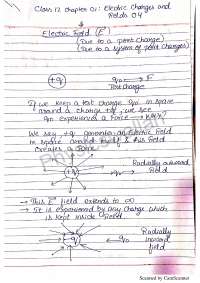 Class 12 chapter 01: Electric Charges and
Fields 04
Electric Field (E)
(Due to a point charge)
(Due to a system of point charges)
+q
q₀ → F
Test charge
If we keep a test charge q₀ in space
around a charge +q, we see
q₀ experiences a force
We say +q generates an electric field
in space around itself & this field
creates a force
Radially outward
field
+q
q₀
→ This E field extends to ∞
→ It is experienced by any charge which
is kept inside field.
-q
q₀
Radially
inward
field
Scanned by CamScanner